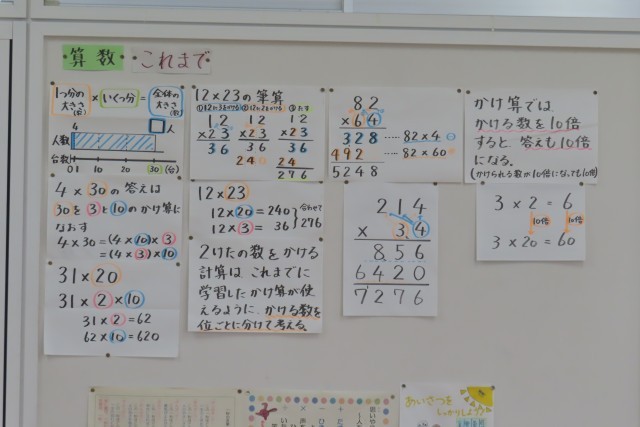 算数 これまで
1つ分の大きさ × いくつ分 = 全体の大きさ
4 □人
人数
台数
0 1 10 20 30 (台)
4×30の答えは
30を3と10のかけ算に
なおす
4×30=(4×10)×3
=(4×3)×10
31×20
31×2×10
31×2=62
62×10=620
12×23の筆算
①12に3をかける ②12に2をかける ③たす
12 12 12
×23 ×23 ×23
36 36 36
24 24
276
12×23
12×20=240
12×3=36
合わせて
276
2けたの数をかける
計算は これまでに
学習したかけ算が使
えるように、かける数を
位ごとに分けて考える。
82
×64
328 ….. 82×4
492 ….. 82×60
5248
214
× 34
856
6420
7276
かけ算では、
かける数を10倍
すると 答えも10倍
になる。
(かけられる数が10倍になっても10倍)
3×2=6
10倍 10倍
3×20=60
あいさつを
しっかりしよう